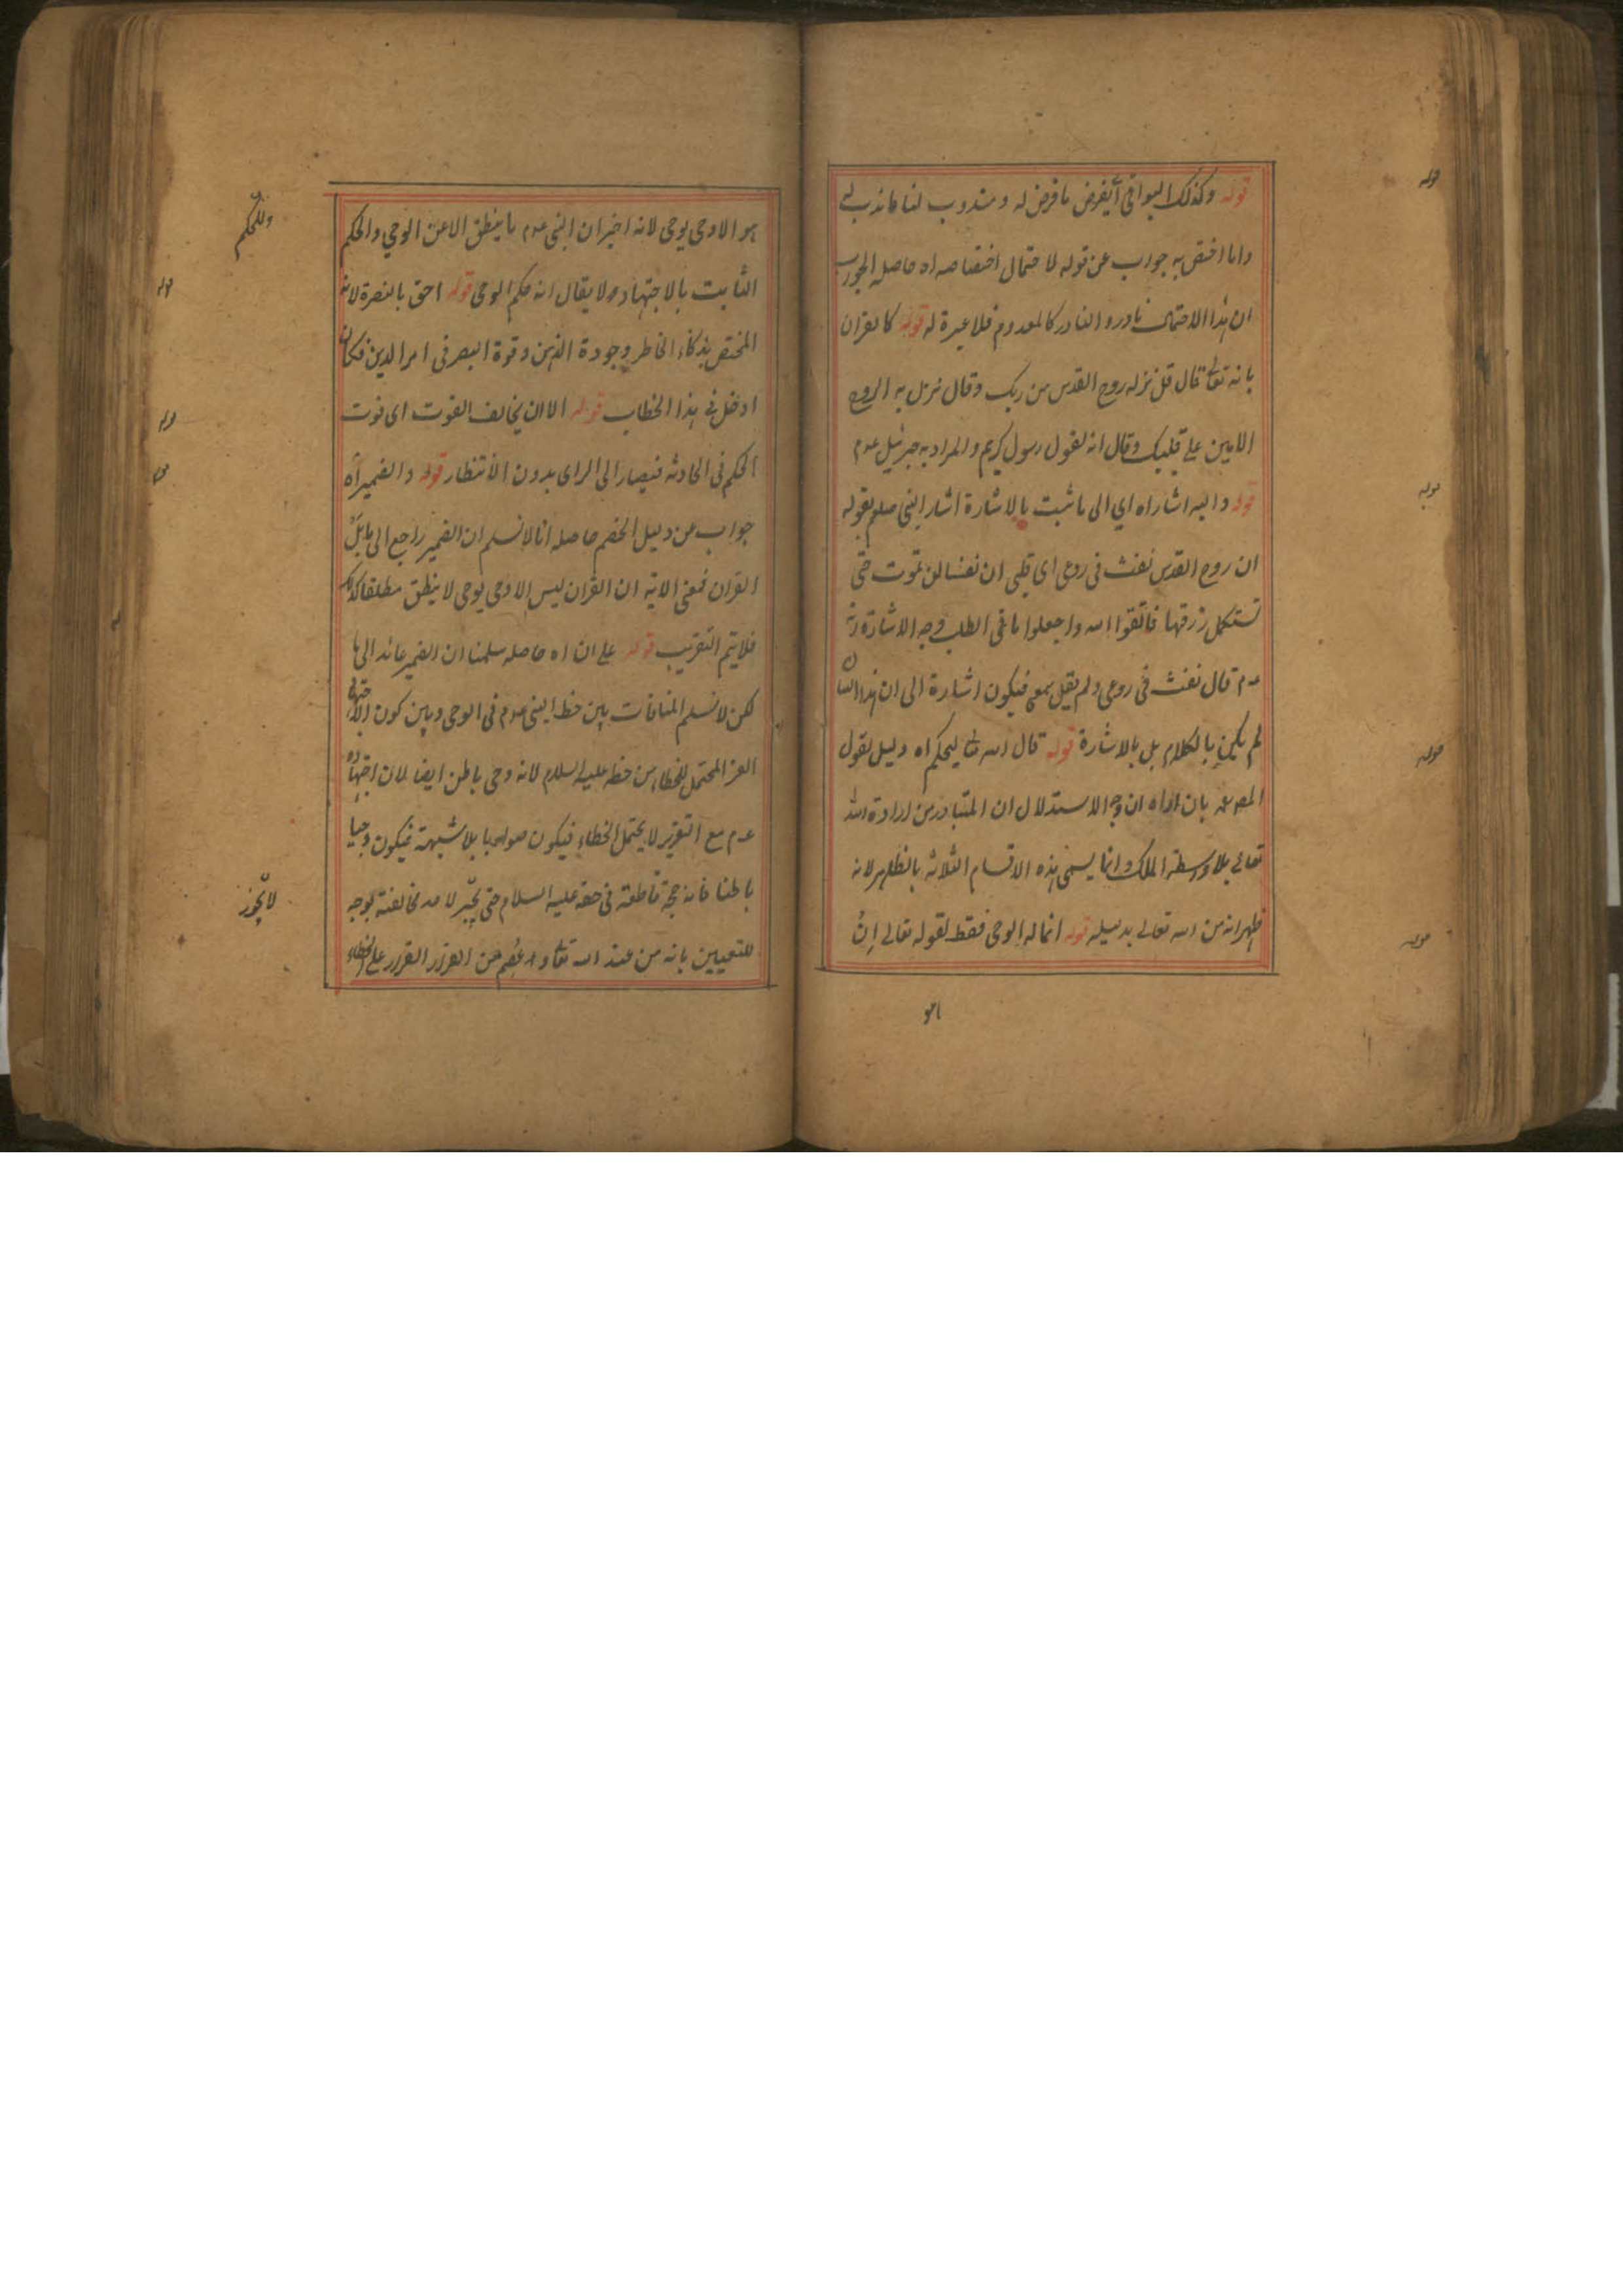 قوله وكذلك البواقي أي يفرض ما فرض له ومندوب لنا ما ندب له
واما اختص به جواب عن قوله لاحتمال اختصاصه اه حاصل الجواب
ان هذا الاحتمال نادر والنادر كالمعدوم فلا عبرة له قوله كالقران
بانه تعالى قال قل نزله روح القدس من ربك وقال نزل به الروح
الامين على قلبك وقال انه لقول رسول كريم والمراد به جبرئيل عم
قوله واليه اشار اه اي الى ما ثبت بالاشارة اشار النبي صلعم بقوله
ان روح القدس نفث في روعي اي قلبي ان نفسا لن تموت حتى
تستكمل رزقها فاتقوا الله واجعلوا ما في الطلب وجه الاشارة انه
عم قال نفث في روعي ولم يقل سمعي فيكون اشارة الى ان هذا
لم يكن بالكلام بل بالاشارة قوله قال الله تعالى ليحكم اه دليل لقول
المص بان اراه ان وجه الاستدلال ان المتبادر من ارادة الله
تعالى بلا وسطة الملك وانما يسمى هذه الاقسام الثلاثة بالظاهر لانه
ظهر انه من الله تعالى بدليله قوله انما له الوحي فقط لقوله تعالى ان
هو
هو الا وحي يوحى لانه اخبر ان النبي عم ما ينطق الا عن الوحي والحكم
الثابت بالاجتهاد ولا يقال انه حكم الوحي قوله احق بالنصرة لانه
المختص بذكاء الخاطر وجودة الذهن وقوة البصر في امر الدين فكان
ادخل في هذا الخطاب قوله الا ان يخالف الفوت اي فوت
الحكم في الحادثة فيصار الى الراى بدون الانتظار قوله والضمير اه
جواب عن دليل الخصم حاصله انا لا نسلم ان الضمير راجع الى ما بل
القران فمعنى الاية ان القران ليس الا وحي يوحى لا ينطق مطلقا كذلك
فلا يتم التقريب قوله على ان اه حاصله سلمنا ان الضمير عائد الى ما
لكن لا نسلم المنافات بين حظ النبي عم في الوحي وبين كون الاجتهاد
المحتمل للخطاء من حظه عليه السلام لانه وحي باطن ايضا لان اجتهاده
عم مع التقرير لا يحتمل الخطاء فيكون صوابا بلا شبهة فيكون وحيا
باطنا فانه حجة قاطعة في حقه عليه السلام حتى لم يجز لاحد مخالفته بوجه
للتعيين بانه من عند الله تعالى عن القرار على الخطاء
وللحكم
لا يجوز